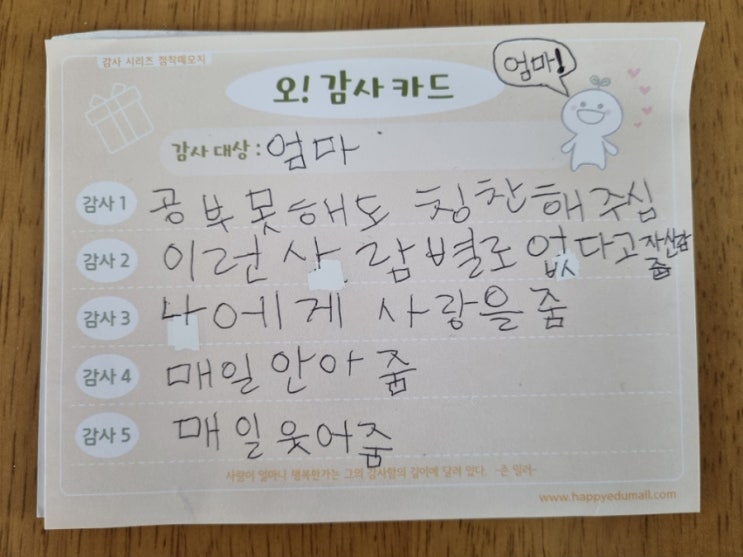 감사 시리즈 점착메모지
오! 감사 카드
엄마!
감사 대상 : 엄마
감사 1 공부 못해도 칭찬해 주심
감사 2 이런 사람 별로 없다고 자신감 줌
감사 3 나에게 사랑을 줌
감사 4 매일 안아 줌
감사 5 매일 웃어줌
사람이 얼마나 행복한가는 그의 감사함의 깊이에 달려 있다. -존 밀러-
www.happyedumall.com